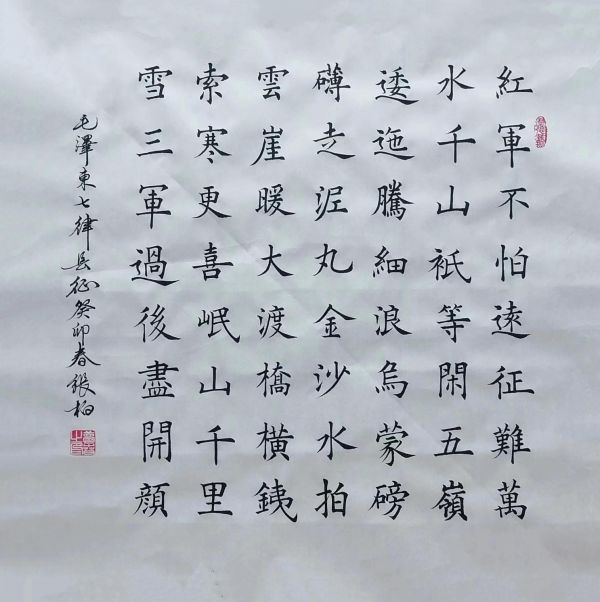 紅軍不怕遠征難萬
水千山祇等閑五嶺
逶迤騰細浪烏蒙磅
礴走泥丸金沙水拍
雲崖暖大渡橋橫銕
索寒更喜岷山千里
雪三軍過後盡開顔
毛澤東七律長征癸卯春張柏